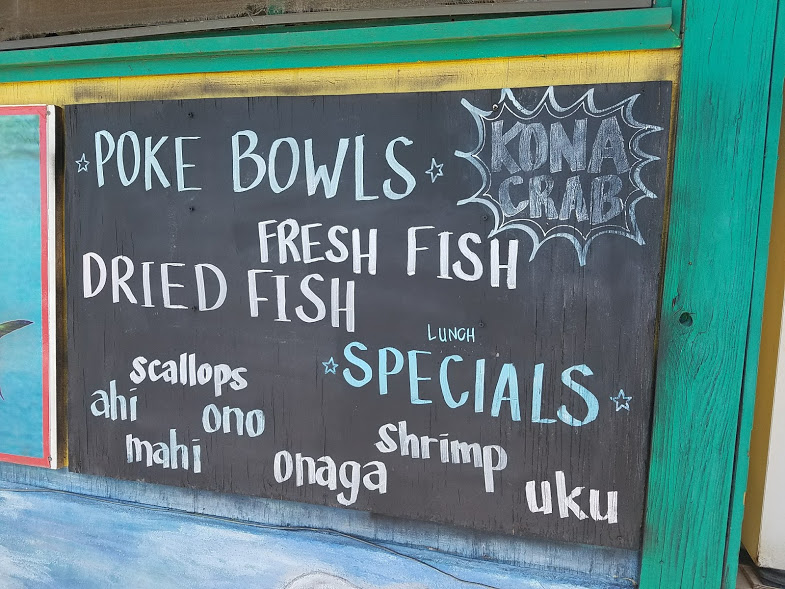 POKE BOWLS
KONA
CRAB
FRESH FISH
DRIED FISH
LUNCH
SPECIALS
scallops
ahi
ono
mahi
shrimp
onaga
uku